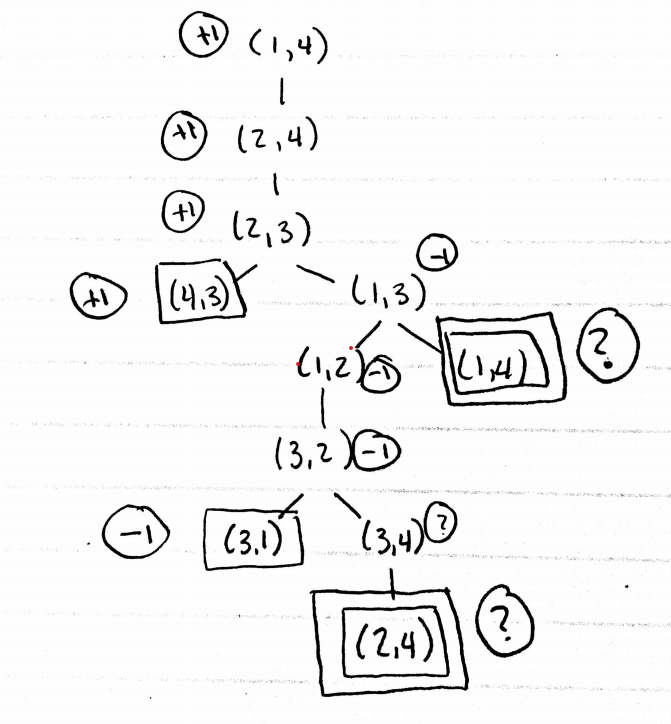 +1 (1,4)
+1 (2,4)
+1 (2,3)
+1 (4,3) (1,3) -1
(1,2) -1 (1,4) ?
(3,2) -1
-1 (3,1) (3,4) ?
(2,4) ?